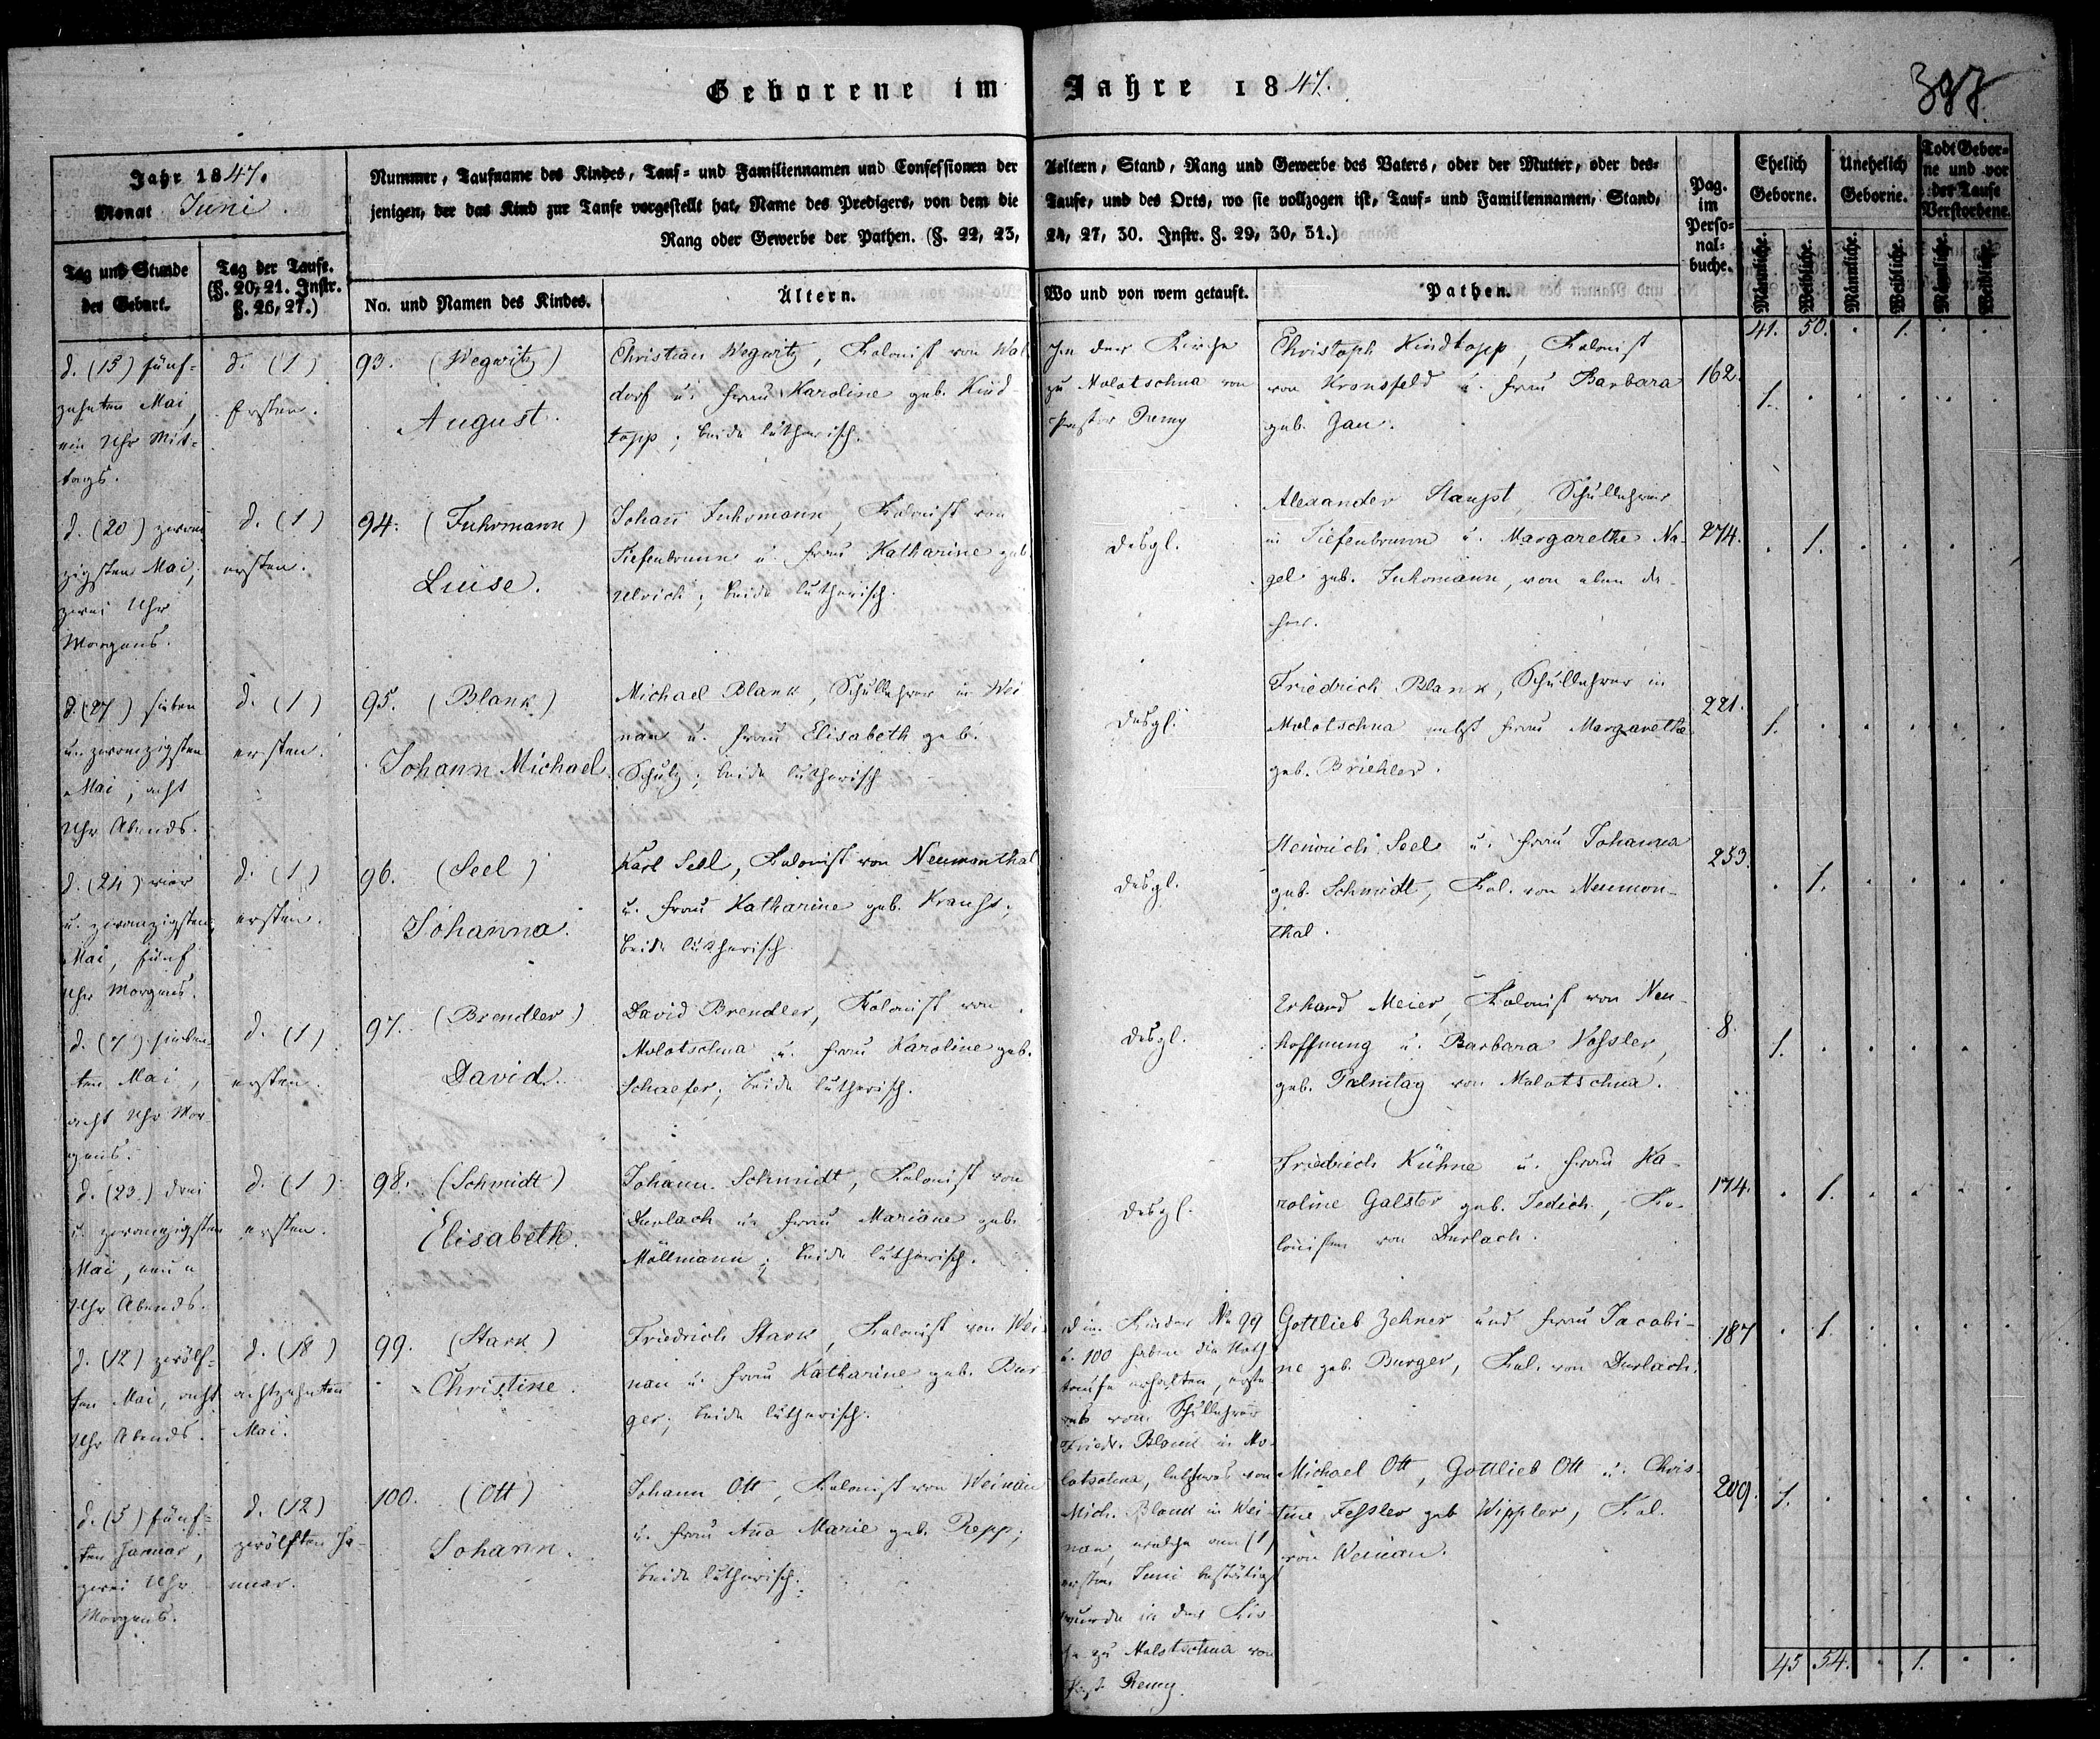 Geborene im Jahre 1847.
397.
Jahr 1847.
Monat Juni.
Nummer, Taufname des Kindes, Tauf- und Familiennamen und Confessionen der Aeltern, Stand, Rang und Gewerbe des Vaters, oder der Mutter, oder des-
jenigen, der das Kind zur Taufe vorgestellt hat, Name des Predigers, von dem die Taufe, und des Orts, wo sie vollzogen ist, Tauf- und Familiennamen, Stand,
Rang oder Gewerbe der Pathen. (§. 22, 23, 24, 27, 30. Instr. §. 29, 30, 31.)
Pag.
im
Perso-
nal-
buche.
Ehelich
Geborne.
Unehelich
Geborne.
Todt Gebor-
ne und vor
der Taufe
Verstorbene.
Tag und Stunde
der Geburt.
Tag der Taufe.
(§. 20, 21. Instr.
§. 26, 27.)
No. und Namen des Kindes.
Ältern.
Wo und von wem getauft.
Pathen.
Männliche.
Weibliche.
Männliche.
Weibliche.
Männliche.
Weibliche.
41. 50. . 1. . .
d. (15) fünf-
zehnten Mai,
ein Uhr Mit-
tags.
d. (1)
Ersten.
93. (Wegwitz)
August.
Christian Wegwitz, Kolonist von Wal
dorf u. Frau Karoline geb. Kind-
topp; beide lutherisch.
In der Kirche
zu Molotschna von
Pastor Remy
Christoph Kindtopp, Kolonist
von Kronsfeld u. Frau Barbara
geb. Jau.
162.
1. . . . . .
d. (20) zwan
zigsten Mai,
zwei Uhr
Morgens.
d. (1)
ersten.
94. (Fuhrmann)
Luise.
Johann Fuhrmann, Kolonist von
Tiefenbrunn u. Frau Katharine geb
Ulrich; beide lutherisch.
desgl.
Alexander Staupt, Schullehrer
in Tiefenbrunn u. Margarethe Na-
gel geb. Fuhrmann, von eben da-
her.
274.
. 1. . . . .
d. (27) sieben
u. zwanzigsten
Mai, acht
Uhr Abends.
d. (1)
ersten.
95. (Blank)
Johann Michael.
Michael Blank, Schullehrer in Wei
nau u. Frau Elisabeth geb.
Schulz; beide lutherisch
desgl.
Friedrich Blank, Schullehrer in
Molotschna nebst Frau Margarethe
geb. Briehler.
221.
1. . . . . .
d. (24) vier
u. zwanzigsten
Mai, fünf
Uhr Morgens.
d. (1)
ersten.
96. (Seel)
Johanna.
Karl Seel, Kolonist von Neumonthal
u. Frau Katharine geb. Krauss;
beide lutherisch
desgl.
Heinrich Seel u. Frau Johanna
geb. Schmidt, Kol. von Neumon-
thal.
253.
. 1. . . . .
d. (7) sieben-
ten Mai,
acht Uhr Mor-
gens.
d. (1)
ersten.
97. (Brendler)
David.
David Brendler, Kolonist von
Molotschna u. Frau Karoline geb.
Schaefer; beide lutherisch.
desgl.
Erhard Meier, Kolonist von Neu-
hoffnung u. Barbara Vossler,
geb. Palmtag von Molotschna.
8.
1. . . . . .
d. (23) drei
u. zwanzigsten
Mai, neun
Uhr Abends.
d. (1)
ersten.
98. (Schmidt)
Elisabeth.
Johann Schmidt, Kolonist von
Durlach u. Frau Mariane geb.
Möllmann; beide lutherisch.
desgl.
Friedrich Kühne u. Frau Ka-
roline Galster geb. Jedich, Ko-
lonisten von Durlach.
174.
. 1. . . . .
d. (12) zwölf-
ten Mai, acht
Uhr Abends.
d. (18)
achtzehnten
Mai.
99. (Stark)
Christine.
Friedrich Stark, Kolonist von Wei
nau u. Frau Katharine geb. Bur
ger; beide lutherisch.
Die Kinder No 99
u. 100 haben die Noth
taufe erhalten, erste
res vom Schullehrer
Friedr. Blank in Mo-
lotschna, letzteres von
Mich. Blank in Wei-
nau, welche am (1)
ersten Juni bestätigt
wurde in der Kir-
che zu Molotschna von
Past. Remy.
Gottlieb Zehner und Frau Jacobi-
ne geb. Burger, Kol. von Durlach.
187
. 1. . . . .
d. (5) fünf-
ten Januar,
zwei Uhr
Morgens.
d. (12)
zwölften Ja-
nuar.
100. (Ott)
Johann.
Johann Ott, Kolonist von Weinau
u. Frau Anna Marie geb. Repp;
beide lutherisch.
Michael Ott, Gottlieb Ott u. Chris-
tine Fessler geb Wippler, Kol.
von Weinau.
209.
1. . . . . .
45 54. . 1. . .